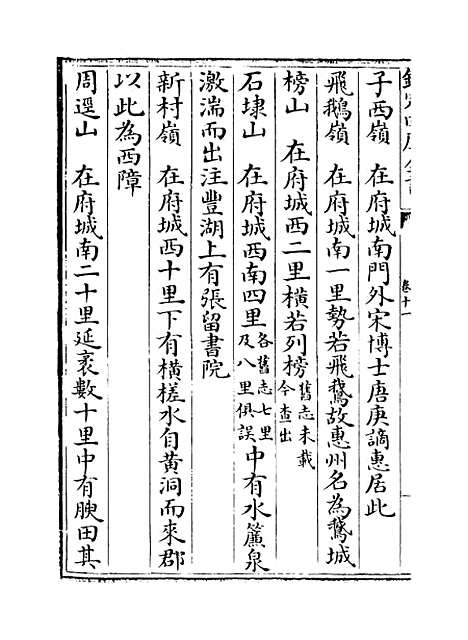 欽定四庫全書
卷十一
子西嶺　在府城南門外宋博士唐庚謫惠居此
飛鵝嶺　在府城南一里勢若飛鵞故惠州名為鵞城
榜山　在府城西二里橫若列榜舊志未載今查出
石埭山　在府城西南四里各舊志七里及八里俱誤中有水簾泉
激湍而出注豐湖上有張留書院
新村嶺　在府城西十里下有橫槎水自黄洞而來郡
以此為西障
周逕山　在府城南二十里延袤數十里中有腴田其